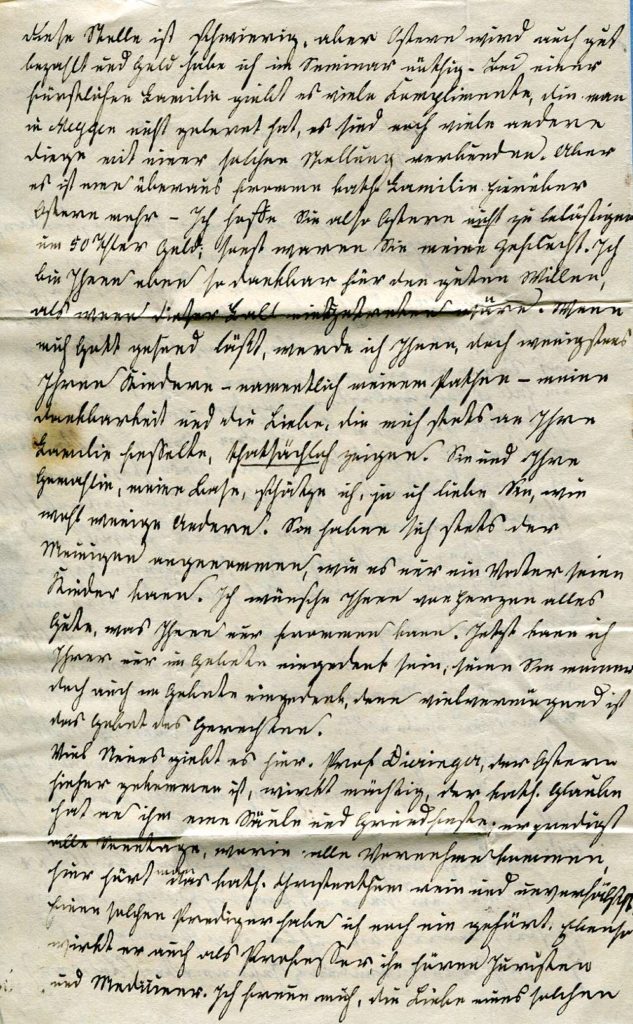 Diese Stelle ist schwierig, aber Ostern wird auch gut
bezahlt und Geld habe ich im Seminar nöthig. Bei einer
fürstlichen Familie giebt es viele Complimente, die man
in nicht gelernt hat, es sind noch viele andere
Dinge mit einer solchen Stellung verbunden. Aber
es ist eine überaus fromme kath. Familie hierüber
Ostern mehr – Ich hoffe Sie also Ostern nicht zu belästigen
um 50 Thler Geld, sonst waren Sie meine Zuflucht. Ich
bin Ihnen eben so dankbar für den guten Willen,
als wenn dieser Fall eingetreten wäre. Wenn
mich Gott gesund läßt, werde ich Ihnen, doch wenigstens
Ihren Kindern – namentlich meinem Pathen – meine
Dankbarkeit und die Liebe, die mich stets an Ihre
Familie fesselte, thatsächlich zeigen. Sie und Ihre
Gemahlin, meine Base, schätze ich, ja ich liebe Sie, wie
wohl wenige Andere. Sie haben sich stets der
Meinigen angenommen, wie es nur ein Vater seiner
Kinder kann. Ich wünsche Ihnen von Herzen alles
Gute, was Ihnen nur frommen kann. Jetzt kann ich
Ihrer nur im Gebete eingedenk sein, seien Sie meiner
doch auch im Gebete eingedenk, denn vielvermögend ist
das Gebet des Gerechten.
Viel Neues giebt es hier. Prof. Dieringer, der Ostern
hieher gekommen ist, wirkt mächtig, der kath. Glaube
hat an ihm eine Säule und Grundfeste; er predigt
alle Sonntage, worin alle Vornehme kommen,
hier hört man das kath. Christenthum rein und unverfälscht
Einen solchen Prediger habe ich noch nie gehört. Ebenso
wirkt er auch als Professor, ihn hören Juristen
und Mediciner. Ich freue mich, die Liebe eines solchen